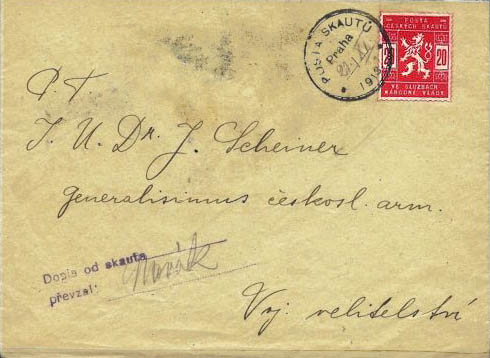 POŠTA SKAUTŮ
Praha
1918
POŠTA
ČESKÝCH SKAUTŮ
20 20
VE SLUŽBÁCH
NÁRODNÍ VLÁDY
P. T.
J. U. Dr. J. Scheiner
generalisimus českosl. arm.
Dopis od skauta
převzal: Novák
Voj. velitelství